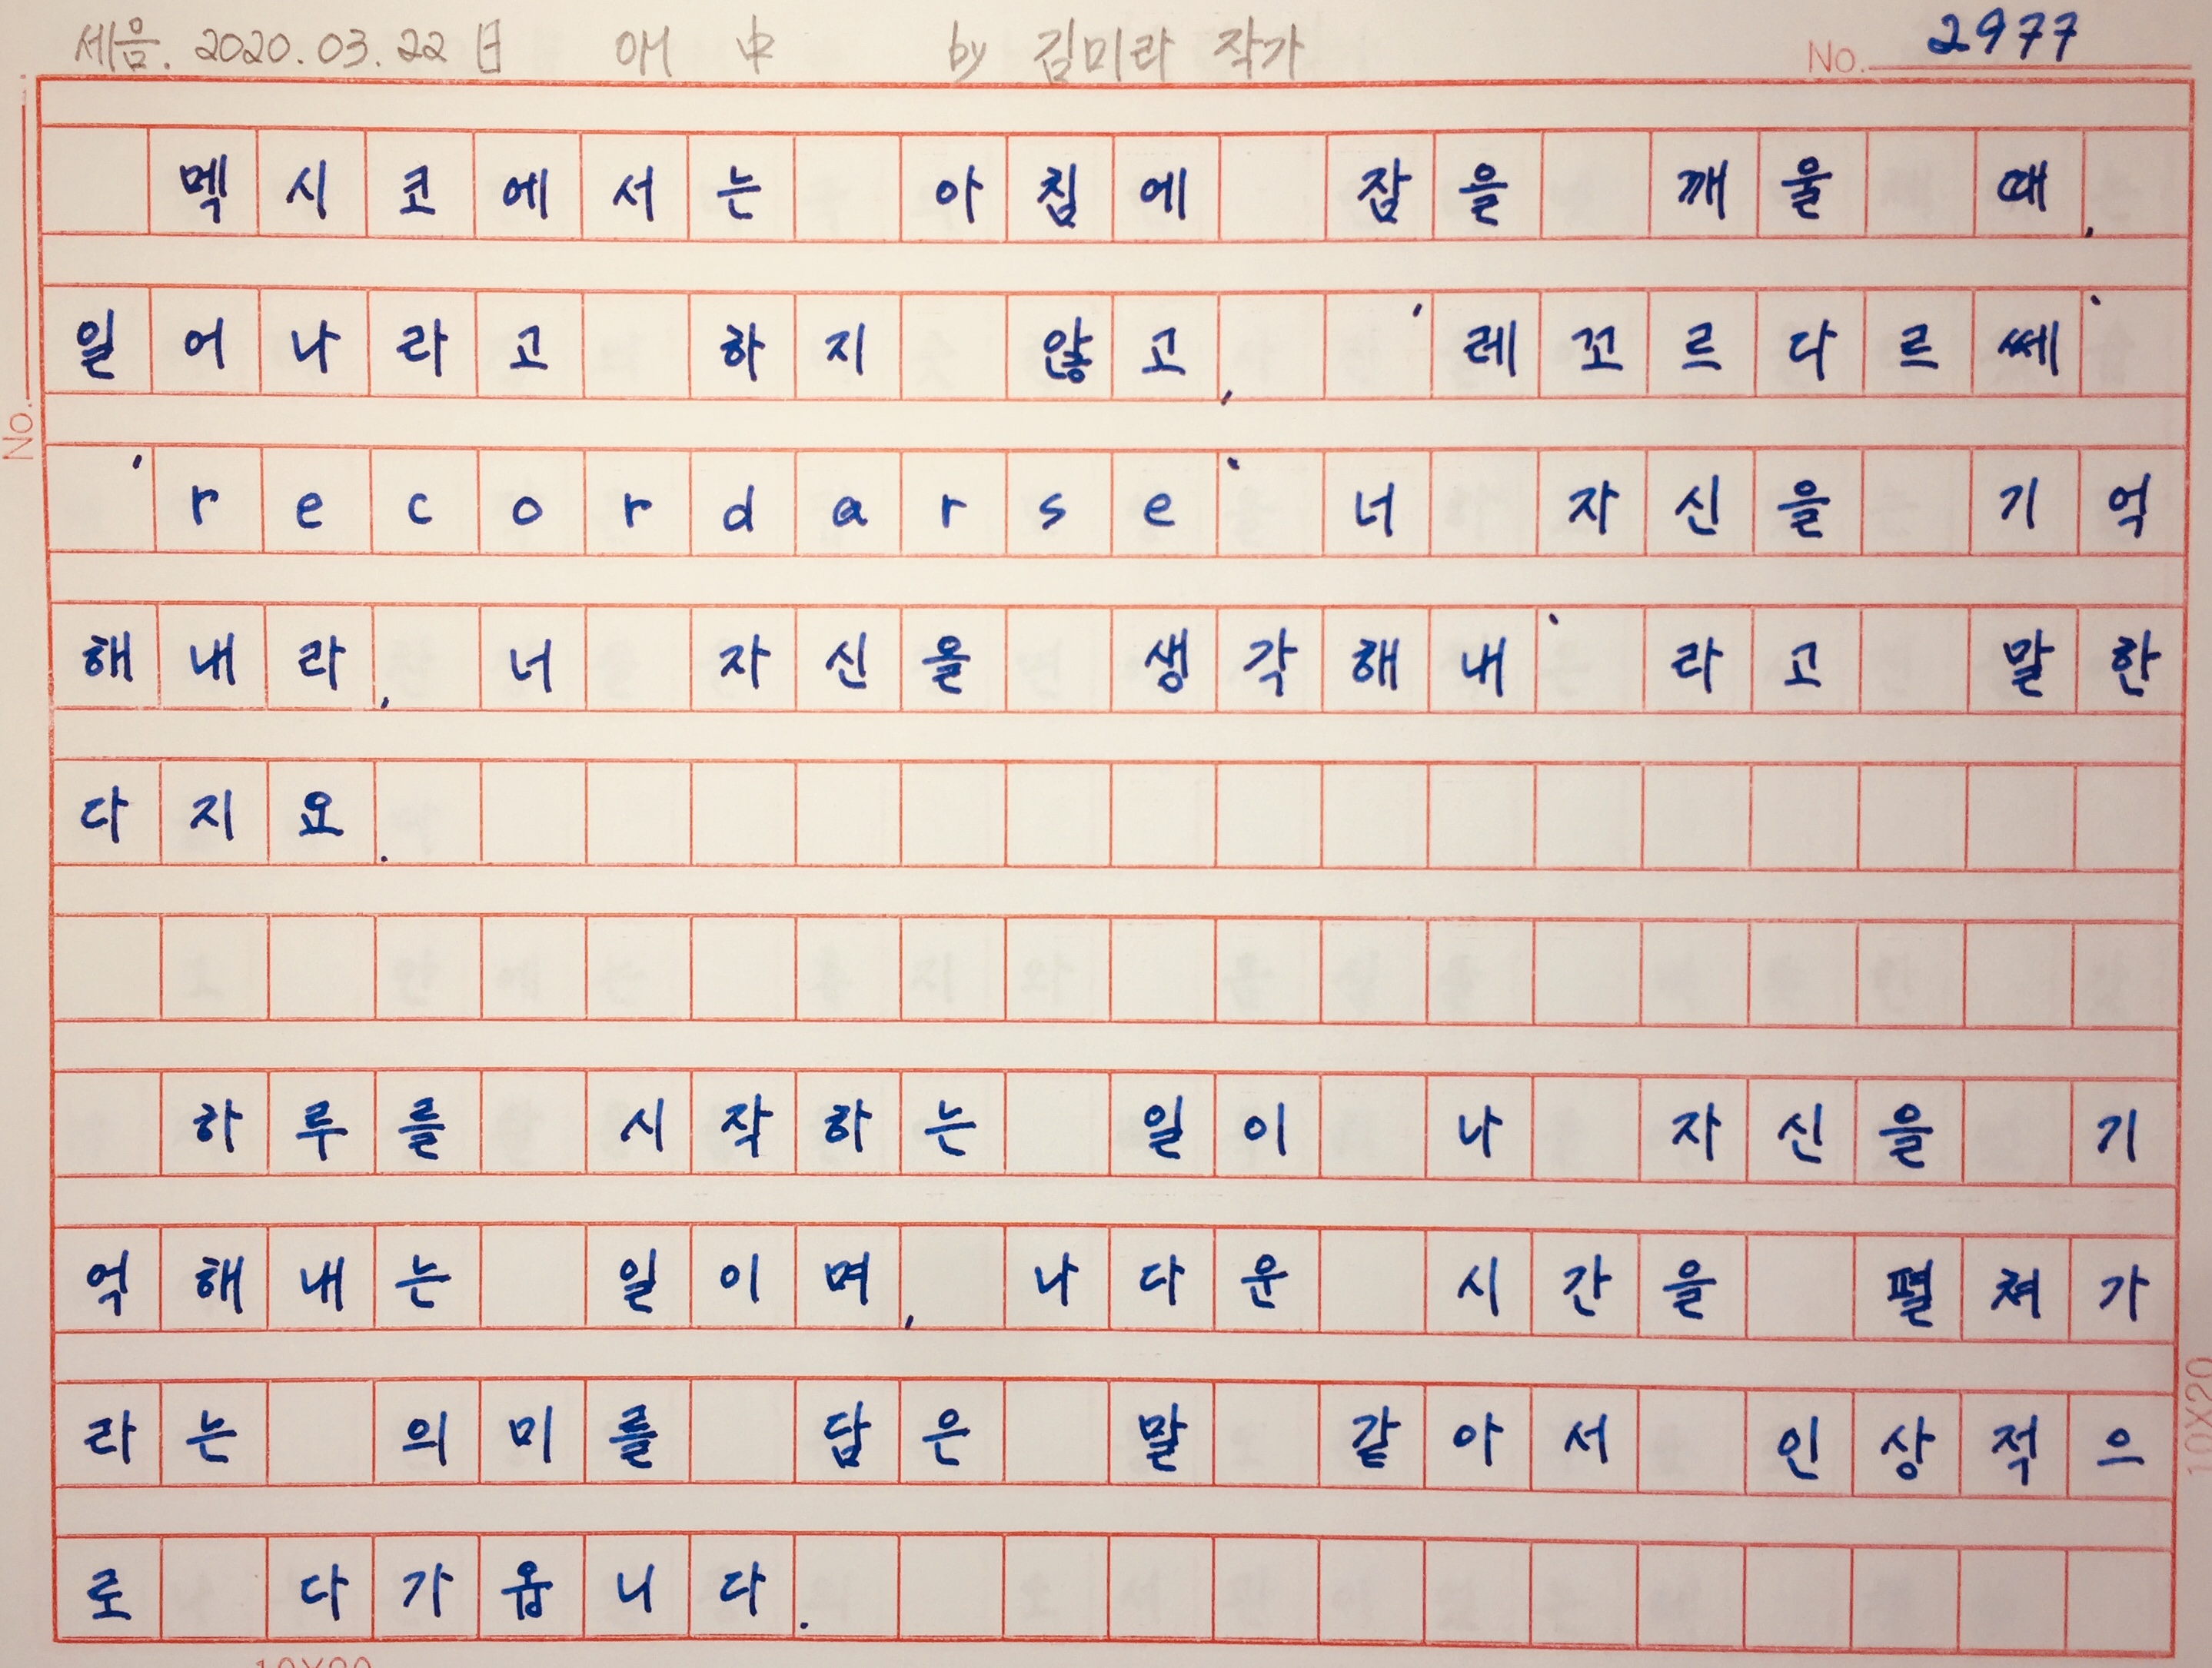 세음. 2020.03.22 日 애 中 by 김미라 작가 No. 2977
멕시코에서는 아침에 잠을 깨울 때,
일어나라고 하지 않고, '레꼬르다르쎄'
'recordarse' 너 자신을 기억
해내라, 너 자신을 생각해내' 라고 말한
다지요.
하루를 시작하는 일이 나 자신을 기
억해내는 일이며, 나다운 시간을 펼쳐가
라는 의미를 담은 말 같아서 인상적으
로 다가옵니다.
No.
10X20